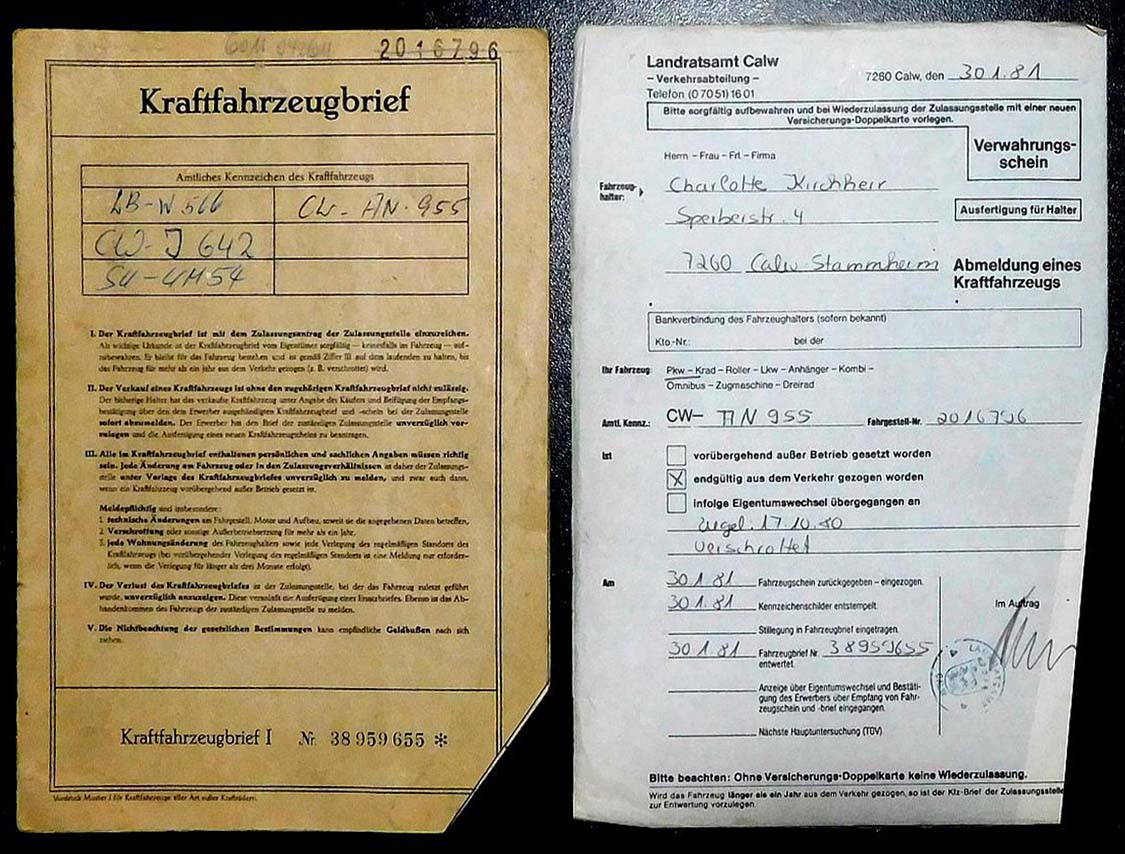 2016796
Kraftfahrzeugbrief
Amtliches Kennzeichen des Kraftfahrzeugs
LB-W 566
CW-AN-955
CW-J 642
SU-UH54
I. Der Kraftfahrzeugbrief ist mit dem Zulassungsantrag der Zulassungsstelle einzureichen.
Als wichtige Urkunde ist der Kraftfahrzeugbrief vom Eigentümer sorgfältig — keinesfalls im Fahrzeug — auf-
zubewahren. Er bleibt für das Fahrzeug bestehen und ist gemäß Ziffer III auf dem laufenden zu halten, bis
das Fahrzeug für mehr als ein Jahr aus dem Verkehr gezogen (z. B. verschrottet) wird.
II. Der Verkauf eines Kraftfahrzeugs ist ohne den zugehörigen Kraftfahrzeugbrief nicht zulässig.
Der bisherige Halter hat das verkaufte Kraftfahrzeug unter Angabe des Käufers und Beifügung der Empfangs-
bestätigung über den dem Erwerber ausgehändigten Kraftfahrzeugbrief und -schein bei der Zulassungsstelle
sofort abzumelden. Der Erwerber hat den Brief der zuständigen Zulassungsstelle unverzüglich vor-
zulegen und die Ausfertigung eines neuen Kraftfahrzeugscheins zu beantragen.
III. Alle im Kraftfahrzeugbrief enthaltenen persönlichen und sachlichen Angaben müssen richtig
sein. Jede Änderung am Fahrzeug oder in den Zulassungsverhältnissen ist daher der Zulassungs-
stelle unter Vorlage des Kraftfahrzeugbriefes unverzüglich zu melden, und zwar auch dann,
wenn ein Kraftfahrzeug vorübergehend außer Betrieb gesetzt ist.
Meldepflichtig sind insbesondere:
1. technische Änderungen am Fahrgestell, Motor und Aufbau, soweit sie die angegebenen Daten betreffen,
2. Verschrottung oder sonstige Außerbetriebsetzung für mehr als ein Jahr,
3. jede Wohnungsänderung des Fahrzeughalters sowie jede Verlegung des regelmäßigen Standorts des
Kraftfahrzeugs (bei vorübergehender Verlegung des regelmäßigen Standorts ist eine Meldung nur erforder-
lich, wenn die Verlegung für länger als drei Monate erfolgt).
IV. Der Verlust des Kraftfahrzeugbriefes ist der Zulassungsstelle, bei der das Fahrzeug zuletzt geführt
wurde, unverzüglich anzuzeigen. Diese veranlaßt die Ausfertigung eines Ersatzbriefes. Ebenso ist das Ab-
handenkommen des Fahrzeugs der zuständigen Zulassungsstelle zu melden.
V. Die Nichtbeachtung der gesetzlichen Bestimmungen kann empfindliche Geldbußen nach sich
ziehen.
Kraftfahrzeugbrief I Nr. 38 959 655 *
Vordruck Muster I für Kraftfahrzeuge aller Art außer Krafträdern.
Landratsamt Calw
– Verkehrsabteilung –
7260 Calw, den 30.1.81
Telefon (0 70 51) 16 01
Bitte sorgfältig aufbewahren und bei Wiederzulassung der Zulassungsstelle mit einer neuen
Versicherungs-Doppelkarte vorlegen.
Verwahrungs-
schein
Herrn – Frau – Frl. – Firma
Fahrzeug-
halter:
Charlotte Kirchherr
Sperberstr. 4
Ausfertigung für Halter
7260 Calw Stammheim
Abmeldung eines
Kraftfahrzeugs
Bankverbindung des Fahrzeughalters (sofern bekannt)
Kto.-Nr.: bei der
Ihr Fahrzeug: Pkw – Krad – Roller – Lkw – Anhänger – Kombi –
Omnibus – Zugmaschine – Dreirad
Amtl. Kennz.: CW– AN 955 Fahrgestell-Nr. 2016796
Ist vorübergehend außer Betrieb gesetzt worden
X endgültig aus dem Verkehr gezogen worden
infolge Eigentumswechsel übergegangen an
zugel. 17.10.80
verschrottet
Am 30.1.81 Fahrzeugschein zurückgegeben – eingezogen.
30.1.81 Kennzeichenschilder entstempelt.
Im Auftrag
Stillegung in Fahrzeugbrief eingetragen.
30.1.81 Fahrzeugbrief Nr. 38959655
entwertet.
Anzeige über Eigentumswechsel und Bestäti-
gung des Erwerbers über Empfang von Fahr-
zeugschein und -brief eingegangen.
Nächste Hauptuntersuchung (TÜV)
Bitte beachten: Ohne Versicherungs-Doppelkarte keine Wiederzulassung.
Wird das Fahrzeug länger als ein Jahr aus dem Verkehr gezogen, so ist der Kfz-Brief der Zulassungsstelle
zur Entwertung vorzulegen.